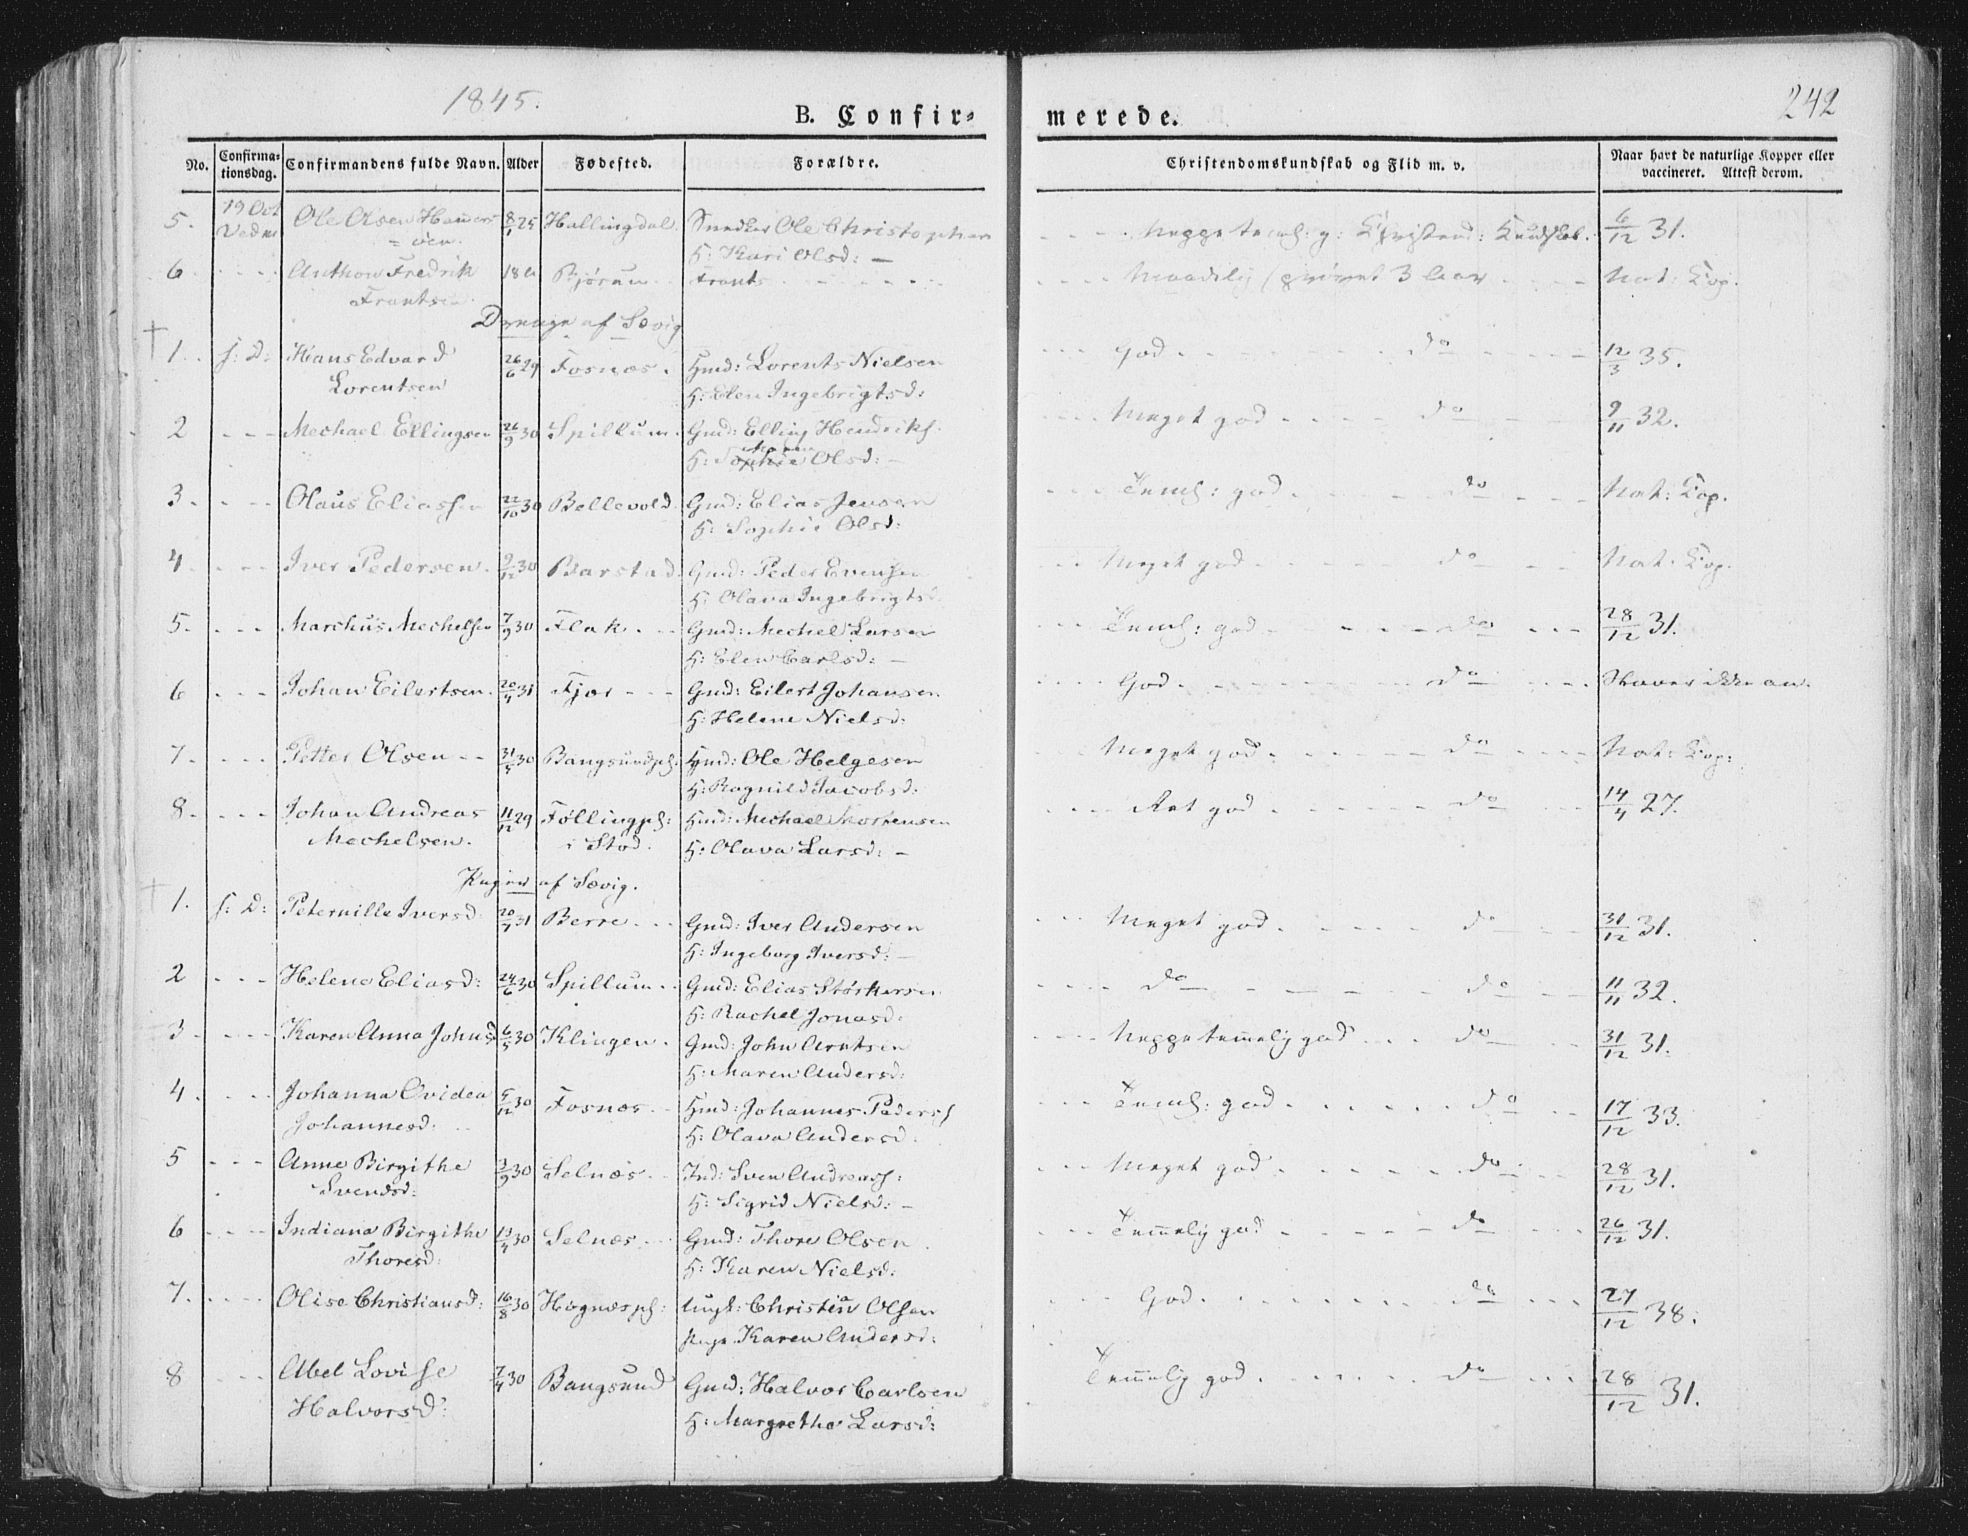 1845.
242
B. Confir-
merede.
No. Confirmationsdag. Confirmandens fulde Navn. Alder Fødested. Forældre. Christendomskundskab og Flid m. v. Naar havt de naturlige Kopper eller vaccineret. Attest derom.
5. 19 Oct Ole Olsen 8/1 25 Hallingdal Snedker Ole Christophersen Neppe teml: g: Christend: Kundskab. 6/12 31.
H: Kari Olsd: -
6 - - - Anthon Fredrik 18 a Bjørum Frants - - - Maadelig (prøvet 3 Aar - - Nat: Kop.
Frantsen
Drenge af Sævig
1. s: D: Hans Edvard 26/6 29 Fosnæs. Hmd: Lorents Nielsen God - - - do - - 12/3 35.
Lorentsen H: Elen Ingebrigtsd:
2 - - - Mechael Ellingsen 26/9 30 Spillum. Gmd: Elling Hendriks. Meget god - - - do - - 9/11 32.
H: Sophie Olsd: -
3 - - - Olaus Eliassen 22/10 30 Bellevold Gmd: Elias Jensen Teml: god - - - do - - Nat: Kop.
H: Sophie Olsd:
4 - - - Iver Pedersen. 9/12 30 Barstad Gmd: Peder Evensen Meget god - - - do - - Nat: Kop.
H: Olava Ingebrigtsd.
5. - - - Marchus Mechelsen 7/9 30 Flak - - Gmd: Mechel Larsen Teml: god - - - do - - 28/12 31.
H: Elen Carlsd: -
6 - - - Johan Eilertsen. 20/4 31 Fjær - - Gmd: Eilert Johansen God - - - do - - Staaer ikke an.
H: Helene Nielsd:
7 - - - Petter Olsen - - 31/5 30 Bangsundpl: Hmd: Ole Helgesen Meget god - - - do - - Nat: Kop:
H: Ragnild Jacobsd:
8. - - - Johan Andreas 11/12 29 Føllingpl: Hmd: Michael Mortensen Ret god - - - do - - 14/4 27.
Mechelsen. i Stod. H: Olava Larsd: -
Piger af Sævig.
1. s: D: Peternille Iversd. 20/4 31 Berre - - Gmd: Iver Andersen Meget god - - - do - - 31/12 31.
H: Ingeborg Iversd: -
2 - - - Helene Eliasd: 24/6 30 Spillum - - Gmd: Elias Størkersen do - - - do - - 11/11 32.
H: Rachel Jonasd.
3 - - - Karen Anna Johnsd 6/5 30 Klingen. Gmd: John Arntsen Neppe temmelig god - - do - - 31/12 31.
H: Maren Andersd:
4 - - - Johanna Ovidea 5/12 30 Fosnæs - - Hmd: Johannes Peders. Teml: god - - - do - - 17/12 33.
Johannesd: H: Olava Andersd.
5 - - - Anne Birgithe 3/9 30 Selnæs - - Ind: Sven Andreass: Meget god - - - do - - 28/12 31.
Svendsd: H: Sigrid Nielsd: -
6 - - - Indiana Birgithe 13/4 30 Selnæs - - Gmd: Thore Olsen Temmelig god - - - do - - 26/12 31.
Thoresd: H: Karen Nielsd:
7. - - - Olise Christiansd: 16/8 30 Høgnæspl: Ungk: Christian Olsen God - - - do - - 27/12 38.
Pige Karen Andersd:
8 - - - Abel Lovise 7/4 30 Bangsund Gmd: Halvor Carlsen Temmelig god - - - do - - 28/12 31.
Halvorsd: H: Margrethe Larsd: